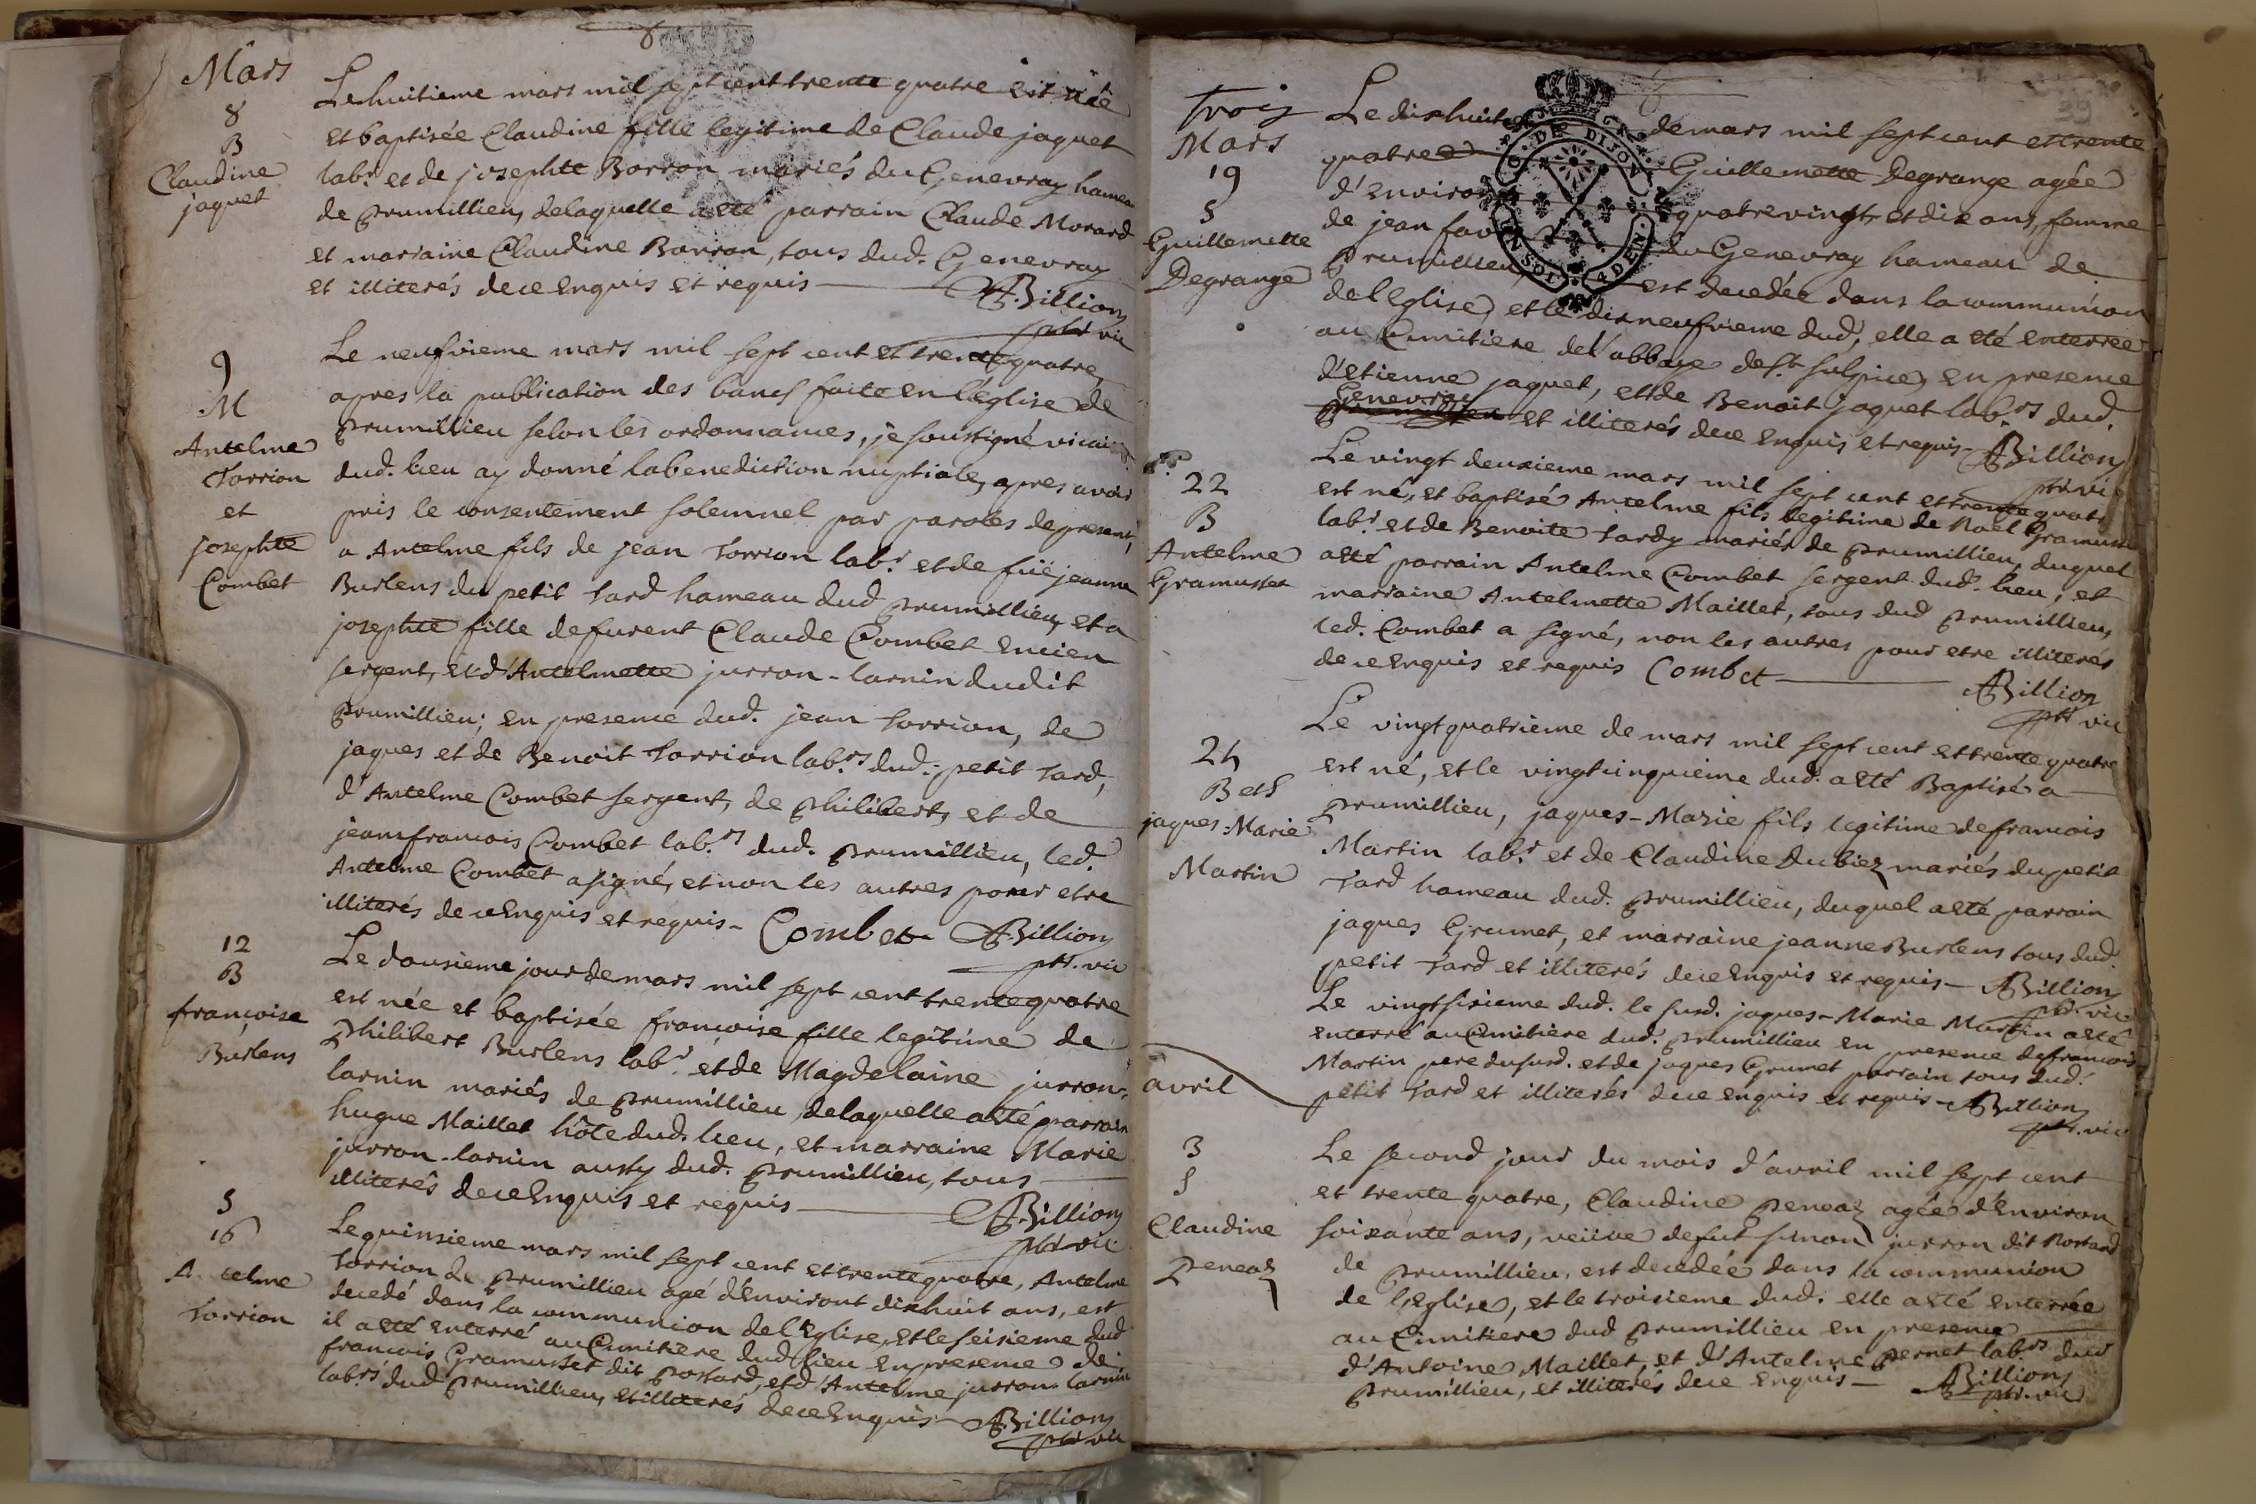 Mars
8
B
Claudine
jaquet
Le huitieme mars mil sept cent trente quatre est née
et baptisée Claudine fille legitime de Claude jaquet
labr. et de josephte Borron mariés du Genevray hameau
de prumillieu, delaquelle a eté parrain Claude Morard
et marraine Claudine Borron, tous dud. Genevray
et illiterés de ce enquis et requis ABillion
ptr. vic
9
M
Antelme
Torrion
et
josephte
Combet
Le neufvieme mars mil sept cent et trente quatre
apres la publication des bancs faite en l'église de
prumillieu selon les ordonnances, je soussigné vicaire
dud. lieu ay donné la benediction nuptiale, apres avoir
pris le consentement solemnel par paroles de present,
a Antelme fils de jean Torrion labr. et de füe jeanne
Burlens du petit Tard hameau dud prumillieu, et a
josephte fille de furent Claude Combet encien
sergent, et d'Antelmette jurron-larnin dudit
prumillieu; en presence dud. jean Torrion, de
jaques et de Benoit Torrion labrs. dud. petit Tard,
d'Antelme Combet sergent, de philibert, et de
jean francois Combet labrs. dud. prumillieu, led.
Antelme Combet a signé, et non les autres pour etre
illiterés de ce enquis et requis - Combet ABillion
ptr. vic
12
B
françoise
Burlens
Le dousieme jour de mars mil sept cent trente quatre
est née et baptisée françoise fille legitime de
philibert Burlens labr. et de Magdelaine jurron-
larnin mariés de prumillieu, delaquelle a eté parrain
hugue Maillet hôte dud. lieu, et marraine Marie
jurron-larnin aussy dud. prumillieu, tous
illiterés de ce enquis et requis ABillion
ptr. vic
S
16
A telme
Torrion
Le quinsieme mars mil sept cent et trente quatre, Antelme
Torrion de prumillieu agé d'environt dixhuit ans, est
decedé dans la communion de l'Eglise, et le seisieme dud
il a eté enterré au Cimitiere dud lieu en presence de
francois Gramusset dit portard, et d'Antelme jurron larnin
labrs dud prumillieu, et illiterés de ce enquis - ABillion
ptr. vic
trois
Mars
19
S
Guillemette
Degrange
Le dixhuit de mars mil sept cent et trente
quatre Guillemette Degrange agée
d'environ quatre vingt, et dix ans, femme
de jean fav du Genevray hameau de
prumillieu, est decedée dans la communion
de l'Eglise, et le dixneufvieme dud. elle a eté enterrée
au Cimitiere de l'abbaye de St. sulpice, en presence
d'Etienne jaquet, et de Benoit jaquet labrs. dud.
Genevray
prumillieu et illiterés de ce enquis et requis - ABillion
ptr. vic
22
B
Antelme
Gramusset
Le vingt deuxieme mars mil sept cent et trente quatre
est né, et baptisé Antelme fils legitime de Noel Gramusset
labr. et de Benoite Tardy mariés de prumillieu, duquel
a eté parrain Antelme Combet sergent dud. lieu, et
marraine Antelmette Maillet, tous dud prumillieu,
led. Combet a signé, non les autres pour etre illiterés
de ce enquis et requis Combet ABillion
ptr. vic
24
B et S
jaques-Marie
Martin
Le vingt quatrieme de mars mil sept cent et trente quatre
est né, et le vingtcinquieme dud. a eté Baptisé a
prumillieu, jaques-Marie fils legitime de francois
Martin labr. et de Claudine Dubiez mariés du petit
Tard hameau dud. prumillieu, duquel a eté parrain
jaques Grumet, et marraine jeanne Burlens tous dud.
petit Tard et illiterés de ce enquis et requis - ABillion
ptr. vic
Le vingtsisieme dud. le susd. jaques-Marie Martin a eté
enterré au Cimitiere dud. prumillieu en presence de francois
Martin pere du susd. et de jaques Grumet parrain tous dud.
petit Tard et illiterés de ce enquis et requis - ABillion
ptr. vic
avril
3
S
Claudine
peneaz
Le second jour du mois d'avril mil sept cent
et trente quatre, Claudine peneaz agée d'environ
soixante ans, veüve de fut simon jurron dit Rostard
de prumillieu, est decedée dans la communion
de l'Eglise, et le troisieme dud. elle a eté enterrée
au Cimitiere dud prumillieu en presence
d'Antoine Maillet, et d'Antelme pernet labrs dud
prumillieu, et illiterés de ce enquis - ABillion
ptr. vic